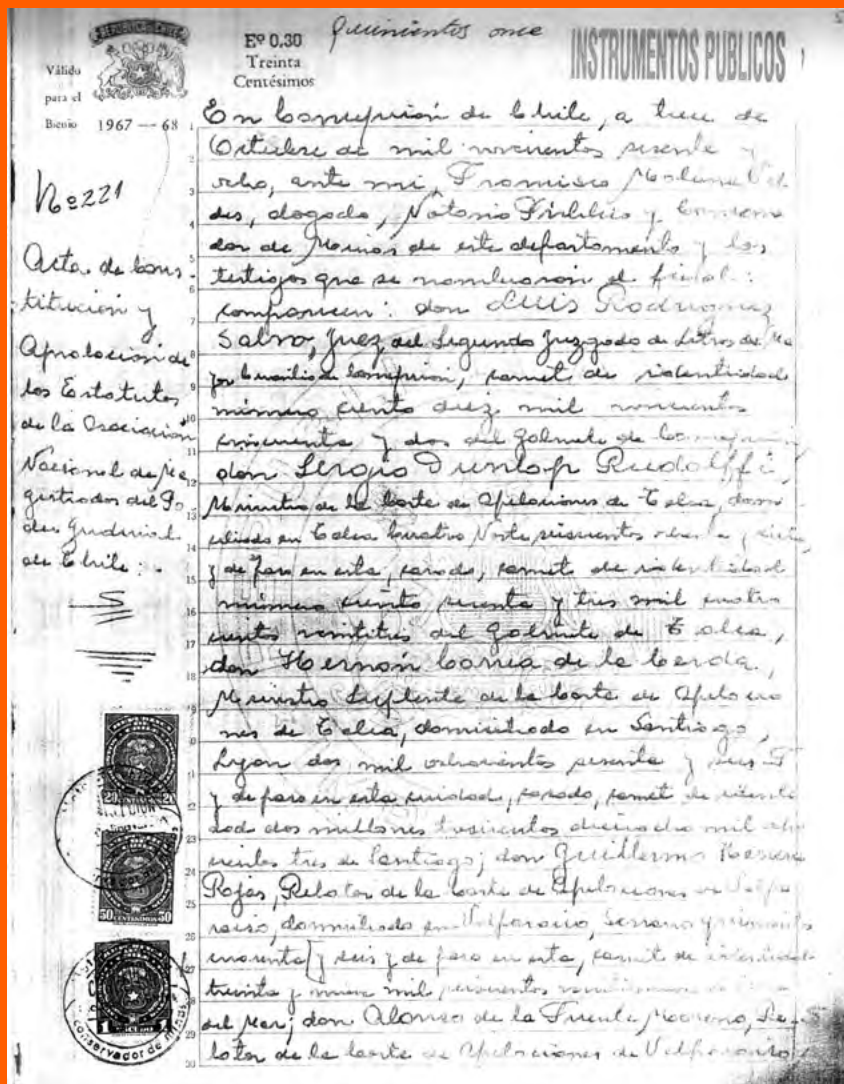 REPUBLICA DE CHILE
Válido
para el
Bienio 1967 — 68
Eº 0,30
Treinta
Centésimos
quinientos once
INSTRUMENTOS PUBLICOS
Nº 221
Acta de Cons
titución y
Aprobación de
los Estatutos
de la Asociación
Nacional de Ma
gistrados del Po
der Judicial
de Chile :
En Concepción de Chile, a trece de
Octubre de mil novecientos sesenta y
ocho, ante mi, Francisco
abogado, Notario Público y Conserva
dor de Minas de este departamento y los
testigos que se nombraron al final :
comparecen : don Luis Rodriguez
Salvo, Juez del Segundo Juzgado de Letras de Ma
yor Cuantía de Concepción, carnet de identidad
número ciento diez mil novecientos
cincuenta y dos del Gabinete de Concepción
don Sergio Dunlop Rudolffi,
Ministro de la Corte de Apelaciones de Talca, domi
ciliado en Talca Cuatro Norte seiscientos y siete,
y de paso en esta, casado, carnet de identidad
número ciento sesenta y tres mil cuatro
cientos veintitres del Gabinete de Talca,
don Hernán Correa de la Cerda,
Ministro Suplente de la Corte de Apelacio
nes de Talca, domiciliado en Santiago,
Lyon dos mil ochocientos sesenta y seis F
y de paso en esta ciudad, casado, carnet de identi
dad dos millones trescientos dieciocho mil
cientos tres de Santiago; don Guillermo
Rojas, Relator de la Corte de Apelaciones de Valpa
raiso, domiciliado en Valparaiso, Serrano quinientos
cuarenta y seis y de paso en esta, carnet de identidad
treinta y nueve mil
del Mar; don Alonso de la Fuente Moreno, Re
lator de la Corte de Apelaciones de Valparaiso
50 CENTESIMOS 50
1 ESCUDO 1
Conservador de Minas